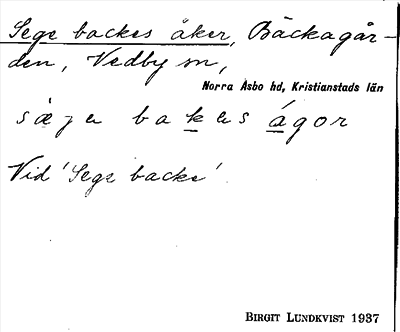 Sege backes åker, Bäckagår-
den, Vedby sn,
Norra Åsbo hd, Kristianstads län
sæje bakes ágor
Vid 'Sege backe'.
BIRGIT LUNDKVIST 1937